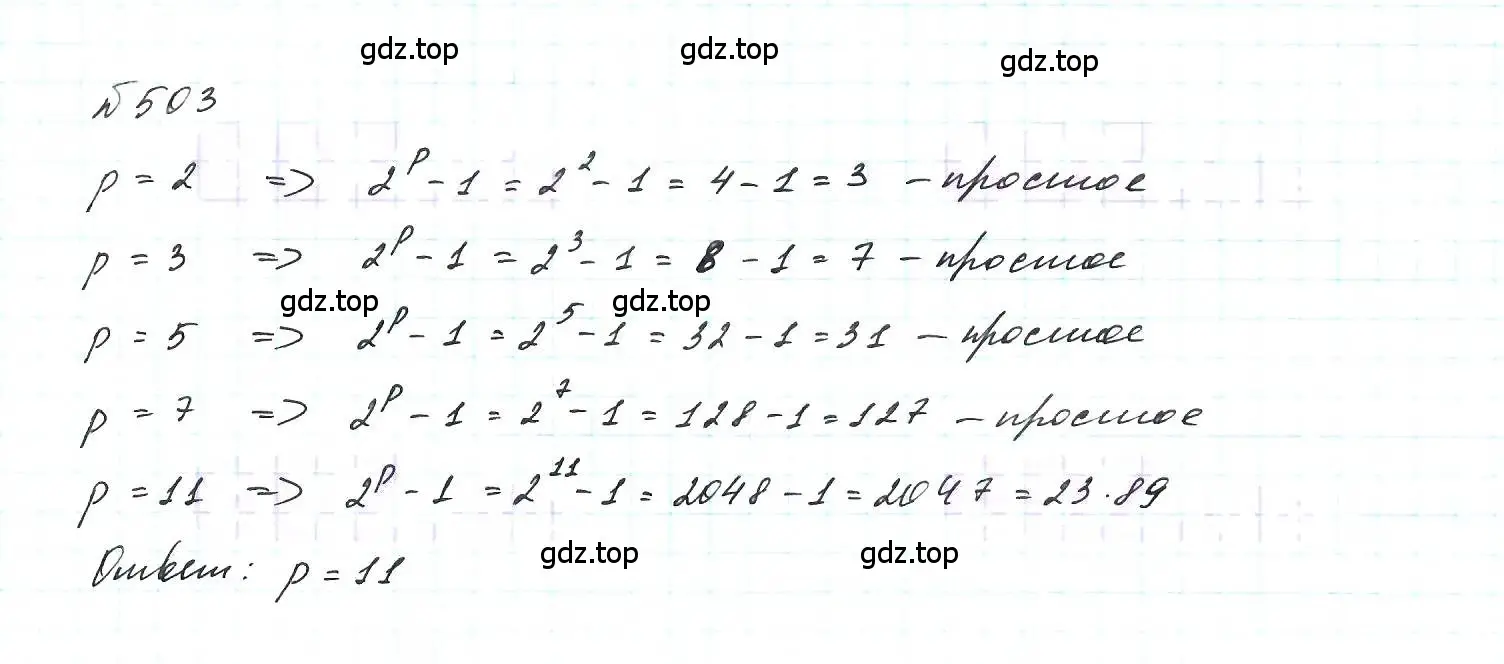 gdz.top gdz.top gdz.top
№503
p = 2 => 2^p - 1 = 2^2 - 1 = 4 - 1 = 3 - простое
p = 3 => 2^p - 1 = 2^3 - 1 = 8 - 1 = 7 - простое
gdz.top gdz.top
p = 5 => 2^p - 1 = 2^5 - 1 = 32 - 1 = 31 - простое
p = 7 => 2^p - 1 = 2^7 - 1 = 128 - 1 = 127 - простое
p = 11 => 2^p - 1 = 2^11 - 1 = 2048 - 1 = 2047 = 23 · 89
gdz.top gdz.top
Ответ: p = 11